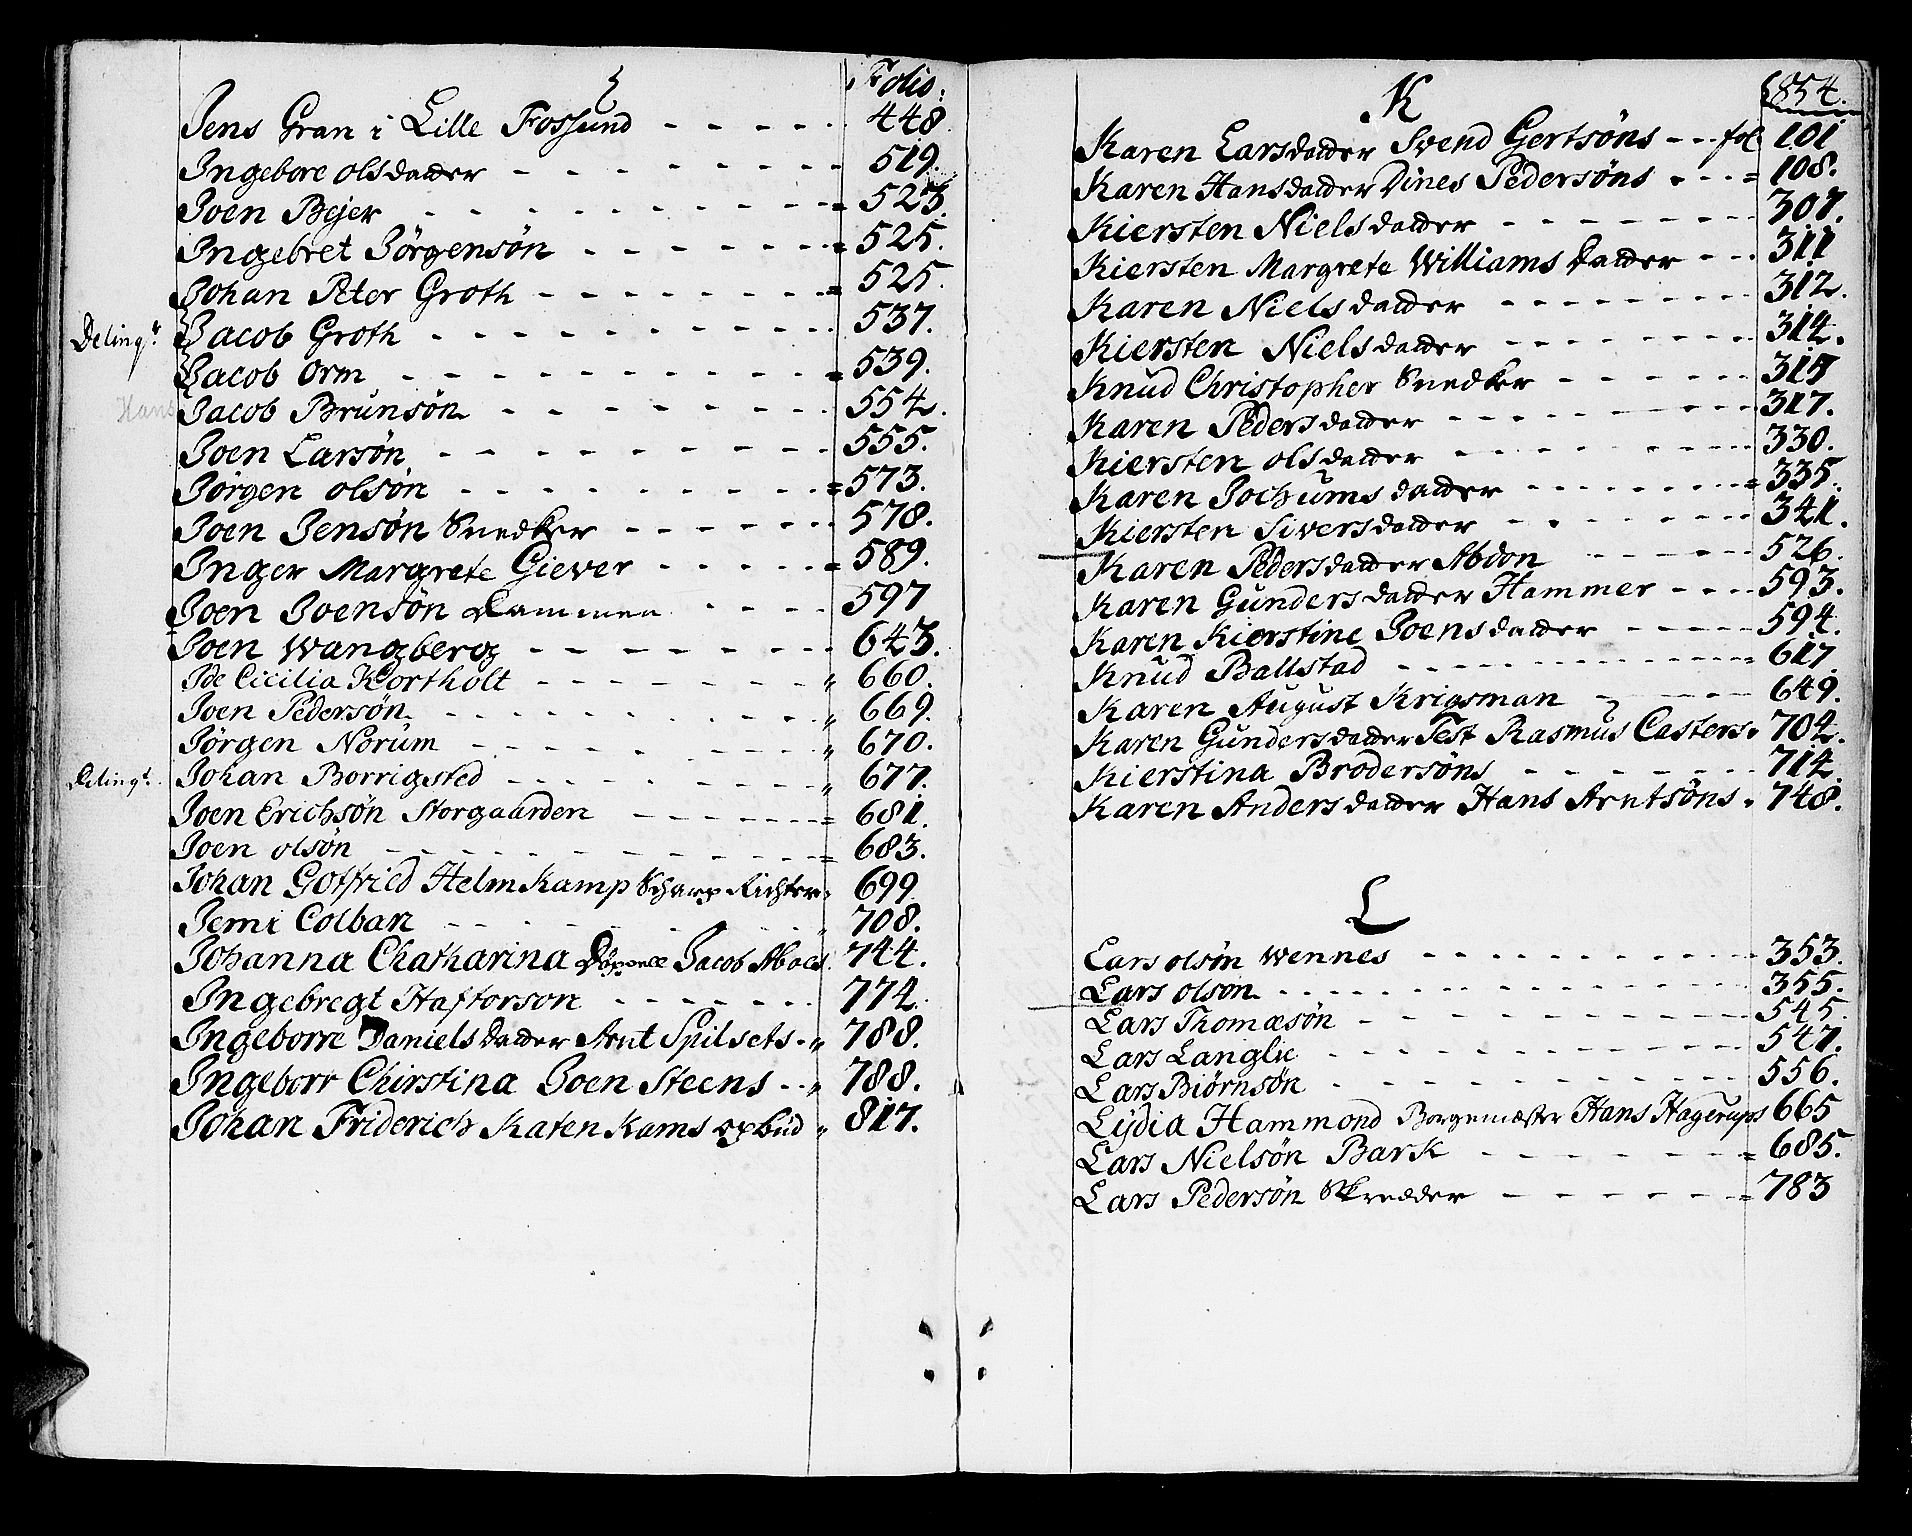 Folio.
Jens Gran i Lille Fossund 448
Ingebore olsdatter 519.
Joen Bejer 523.
Ingebret Jörgensön 525.
Johan Peter Groth 525.
Delingr. Jacob Groth 537.
Jacob Orm 539.
Hans Jacob Brunsön 554.
Joen Larsön 555.
Jörgen olsön 573.
Joen Jensön Snedker 578.
Inger Margrete Giever 589.
Joen Joensön Dammen 597
Joen Wangberg 643.
Ide Cicilia Kortholt 660.
Joen Pedersön 669.
Jörgen Norum 670.
Delingr. Johan Borrigsted 677.
Joen Erichsön Storgaarden 681.
Joen olsön 683.
Johan Gotfried Helmkamp Scharp Richter 699.
Jemi Colban 708.
Johanna Chatharina Jacob Abols 744.
Ingebregt Haftorson 774.
Ingeborre Danielsdatter Arnt Spilsets 788.
Ingeborr Chirstina Joen Steens 788.
Johan Friderich Katenkams opbud 817.
854.
K
Karen Larsdatter Svend Gertsöns fol 101
Karen Hansdatter Dines Pedersöns 108.
Kiersten Nielsdatter 307.
Kiersten Margrete Williamsdatter 311
Karen Nielsdatter 312.
Kiersten Nielsdatter 314.
Knud Christopher Snedker 315
Karen Pedersdatter 317.
Kiersten olsdatter 330.
Karen Jochumsdatter 335.
Kiersten Siversdatter 341.
Karen Pedersdatter Abdon 526.
Karen Gundersdatter Hammer 593.
Karen Kierstine Joensdatter 594.
Knud Ballstad 617.
Karen August Krigsman 649.
Karen Gundersdatter Test Rasmus Casters 704.
Kierstina Brodersöns 714.
Karen Andersdatter Hans Arntsöns 748.
L
Lars olsön Wennes 353.
Lars olson 355.
Lars Thomæsön 545.
Lars Langlie 547.
Lars Biörnsön 556.
Lydia Hammond Borgemæster Hans Hagerups 665
Lars Nielsön Bark 685.
Lars Pedersön Skredder 783